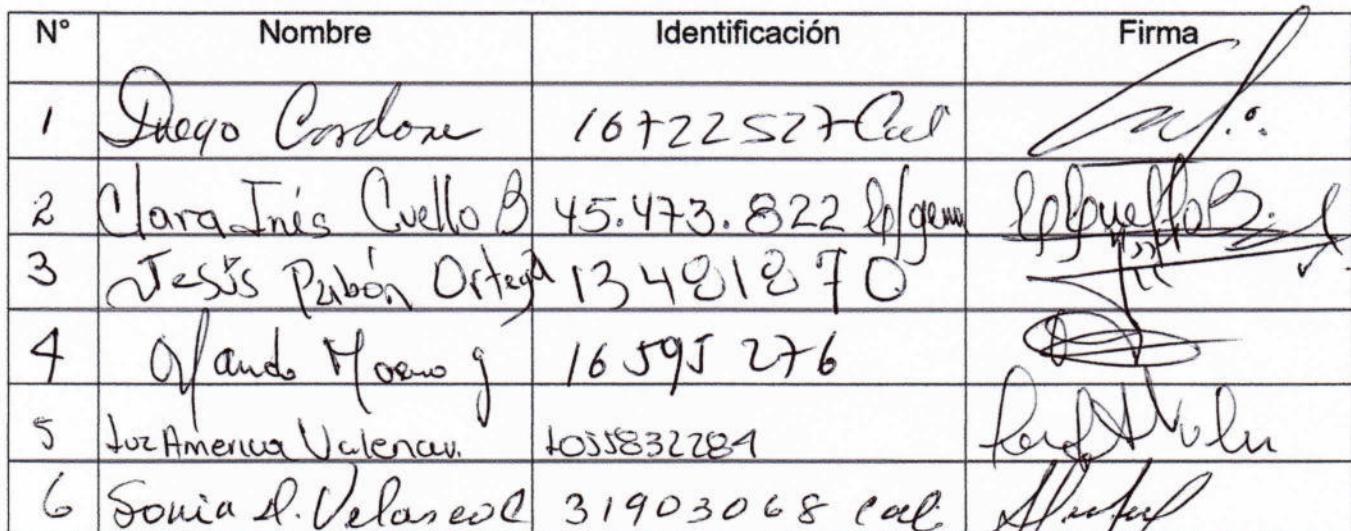 N° Nombre Identificación Firma
1 Diego Cardona 16722527 Cal
2 Clara Inés Cuello B 45.473.822 C/gena CCuelloB.
3 Jesús Pabón Ortega 13481870
4 Orlando Moreno g 16595276
5 Luz America Valencia. 1055832284
6 Sonia A. Velasco C 31903068 Cali